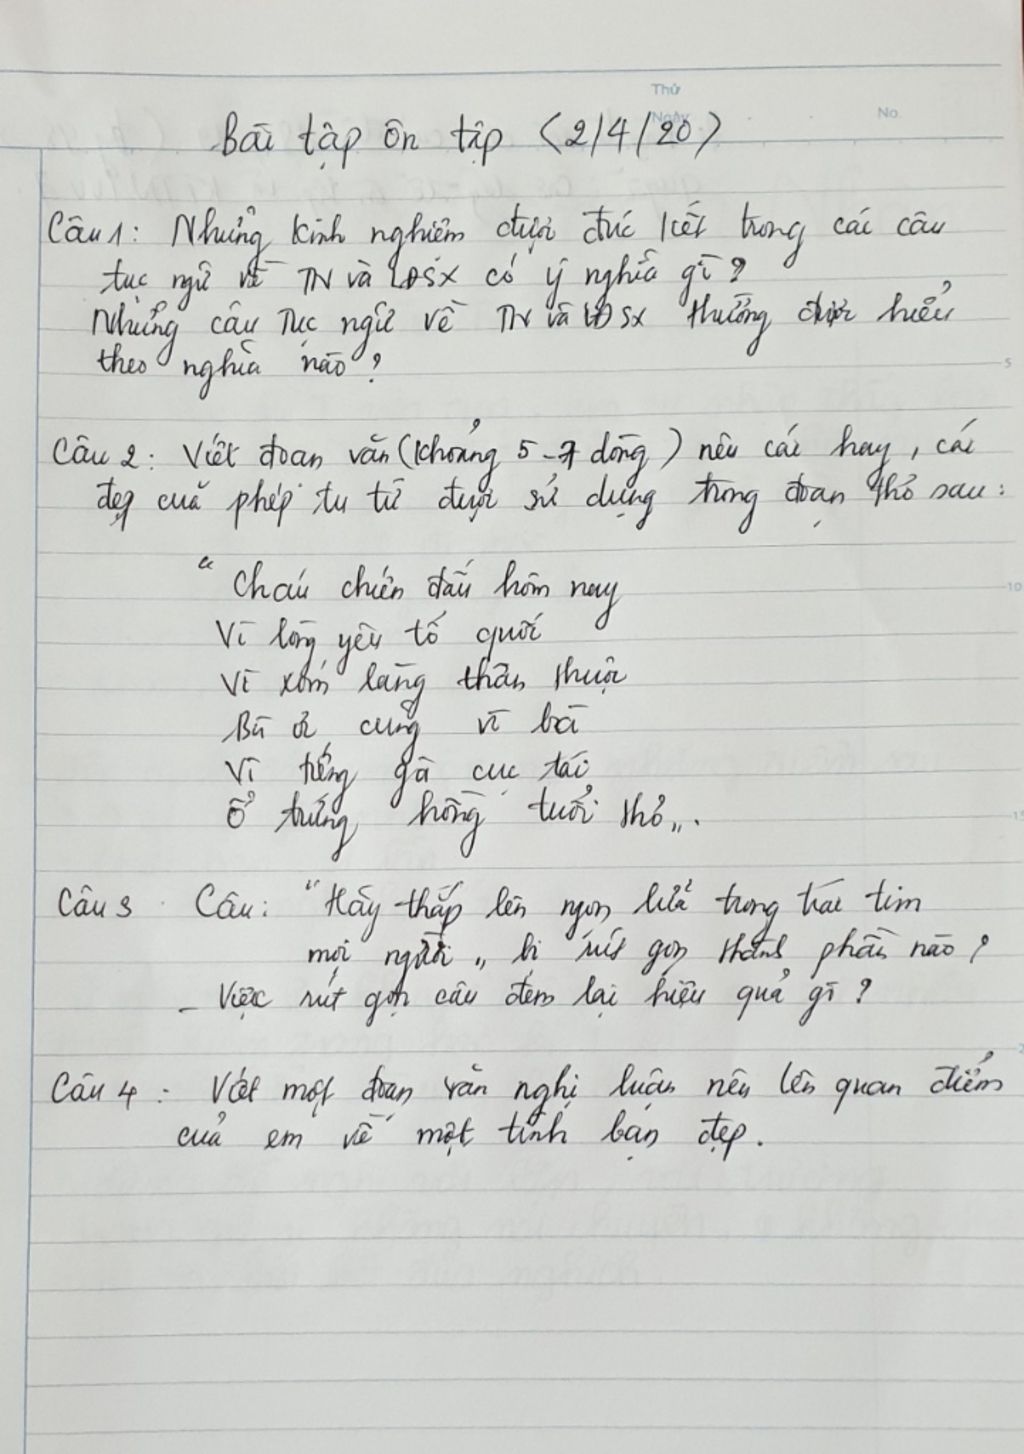 Thứ
Ngày
No.
Bài tập ôn tập (2/4/20)
Câu 1: Những kinh nghiệm được đúc kết trong các câu
tục ngữ về TN và LĐSX có ý nghĩa gì?
Những câu Tục ngữ về TN và LĐSX thường được hiểu
theo nghĩa nào?
5
Câu 2: Viết đoạn văn (khoảng 5-7 dòng) nêu cái hay, cái
đẹp của phép tu từ được sử dụng trong đoạn thơ sau:
"Cháu chiến đấu hôm nay
10
Vì lòng yêu tổ quốc
Vì xóm làng thân thuộc
Bà ơi cũng vì bà
Vì tiếng gà cục tác
Ổ trứng hồng tuổi thơ".
15
Câu 3 Câu: "Hãy thắp lên ngọn lửa trong trái tim
mọi người" bị rút gọn thành phần nào?
- Việc rút gọn câu đem lại hiệu quả gì?
Câu 4: Viết một đoạn văn nghị luận nêu lên quan điểm
của em về một tình bạn đẹp.